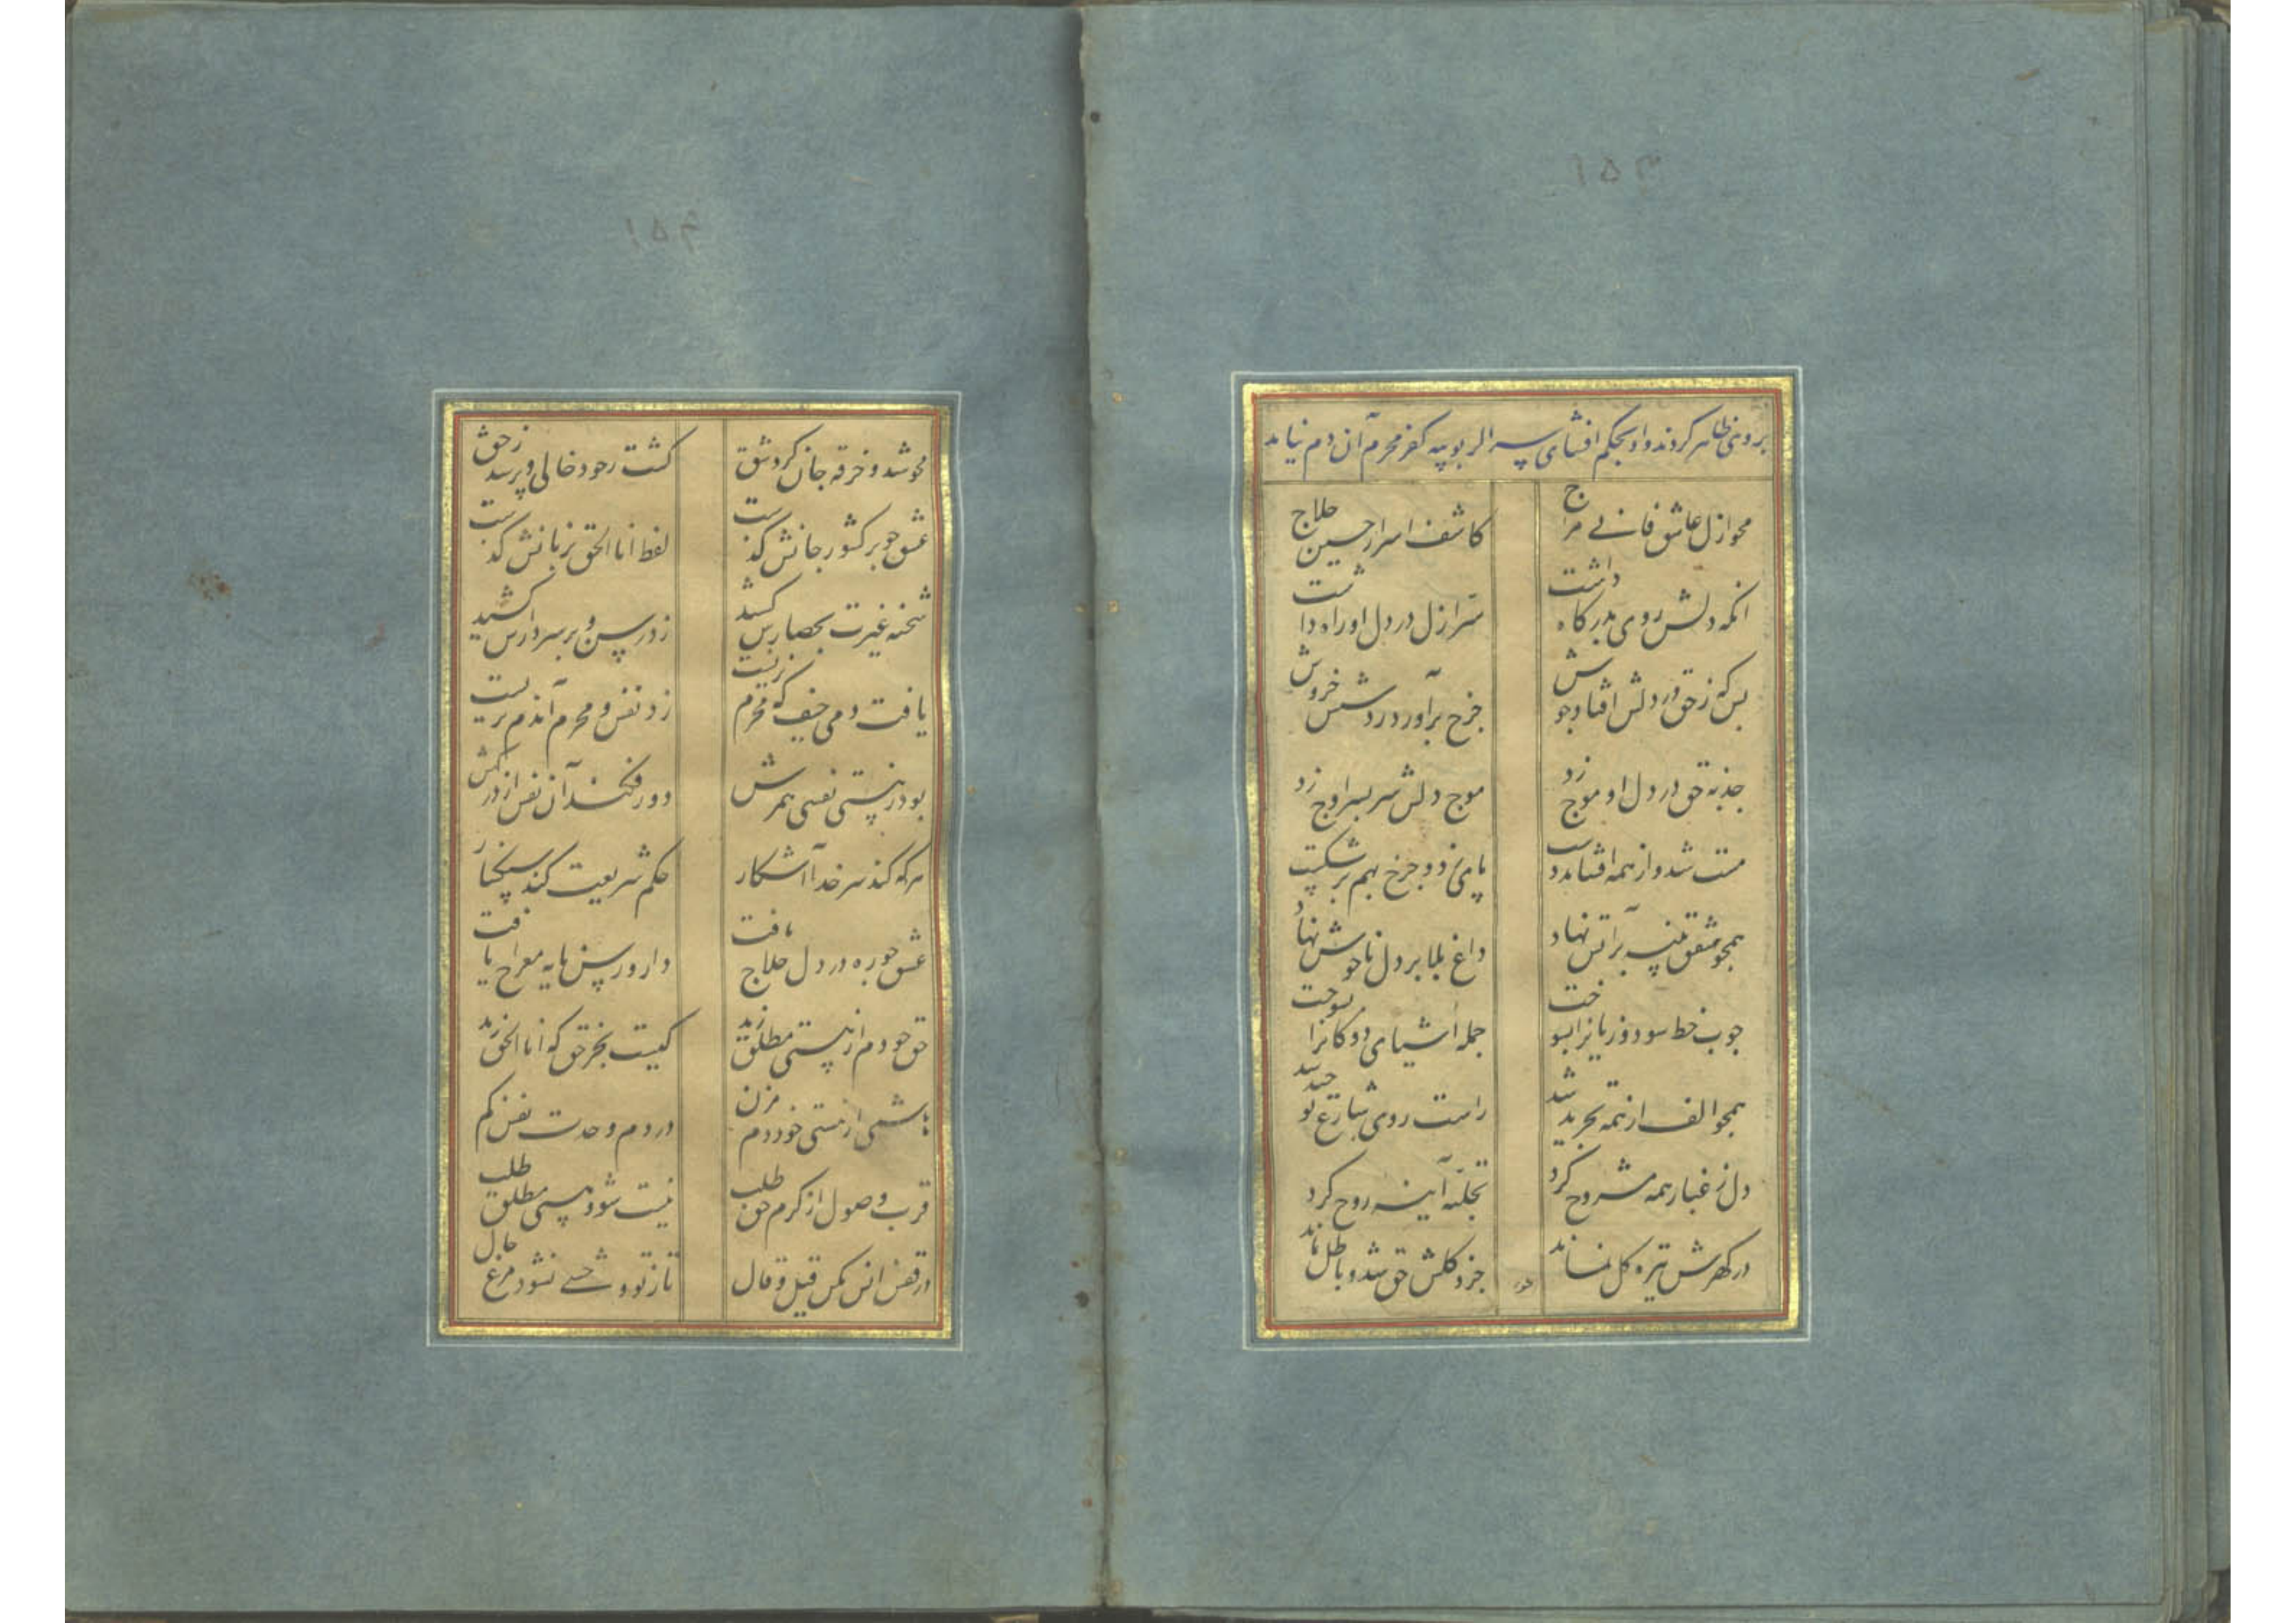 ۱۵۳
بروی ظاهر کردند و او بحکم افشای سر الربوبیه کفر محرم آن دم نیامد
محو ازل عاشق فانی مزاج
کاشف اسرار حسین حلاج
انکه دلش روی بدرکاه داشت
سر ازل در دل او راه داشت
بس که ز حق در دلش افتاد جوش
چرخ برآورد ز دستش خروش
جذبه حق در دل او موج زد
موج دلش سر بسر اوج زد
مست شد و از همه افشاند دست
پای زد و چرخ بهم بر شکست
همچو شفق پنبه بر آتش نهاد
داغ بلا بر دل ناخوش نهاد
چوب خط سود و زیانرا بسوخت
جمله اشیای دوکانرا بسوخت
همچو الف از همه تجرید شد
راست روی شارع توحید شد
دل ز غبار همه مشروح کرد
تجلیه آینه روح کرد
در کهرش تیره کل نماند
جزو کلش حق شد و باطل نماند
۱۵۴
محو شد و خرقه جان کرد شق
کشت ز خود خالی و پر شد ز حق
عشق چو بر کشور جانش گذشت
لفظ انا الحق بزبانش گذشت
شحنه غیرت بحصارش کشید
زد رسن و بر سر دارش کشید
یافت دمی حیف که محرم نزیست
زد نفس و محرم آندم نزیست
بود ز هستی نفسی همرهش
دور فکند آن نفس از درگهش
هر که کند سر خدا آشکار
حکم شریعت کندش سنگسار
عشق چو ره در دل حلاج یافت
دار و رسن پایه معراج یافت
حق چو دم از هستی مطلق زند
کیست بجز حق که انا الحق زند
هاشمی از هستی خود دم مزن
در دم وحدت نفس کم
قرب وصول از کرم حق طلب
نیست شو و هستی مطلق طلب
در قفس انس مکن قیل و قال
تا ز تو وحشی نشود مرغ حال